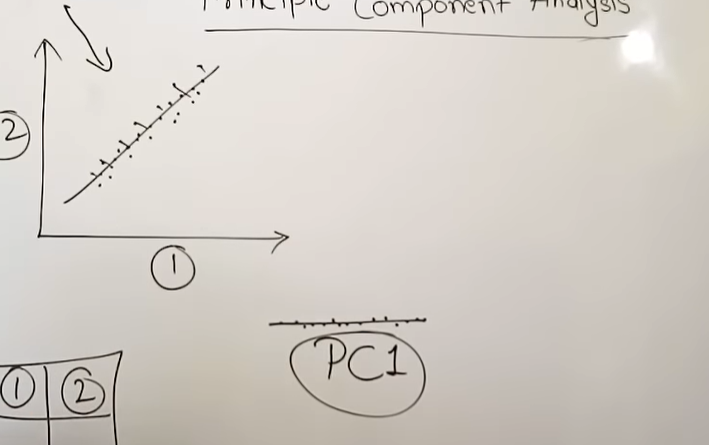 Principle Component Analysis
2
1
PC1
1 2